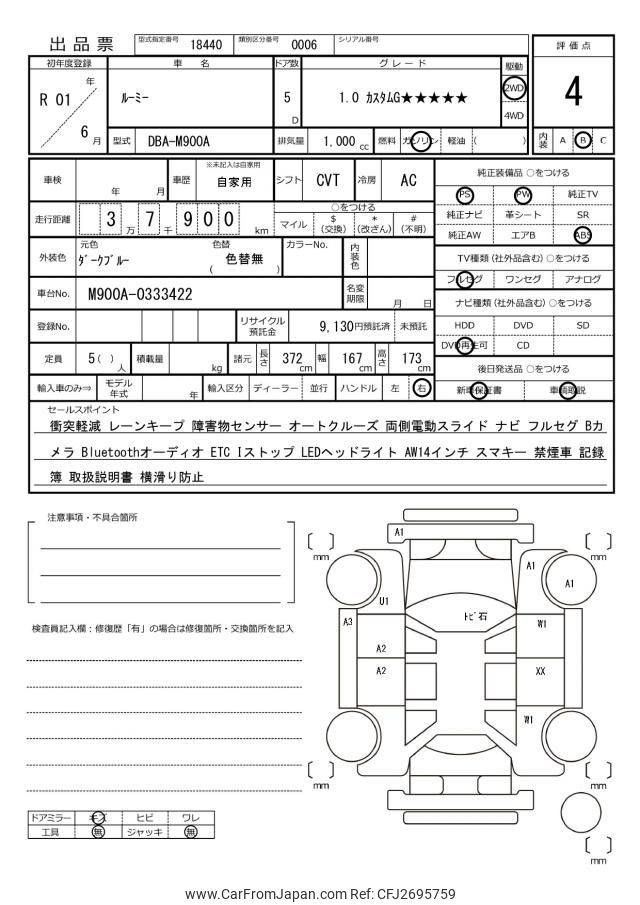 出品票 型式指定番号 18440 類別区分番号 0006 シリアル番号
評価点
4
内装 A B C
初年度登録 車名 ドア数 グレード 駆動
R 01 年 6 月
ルーミー 5 D 1.0 カスタムG★★★★★ 2WD
4WD
型式 DBA-M900A 排気量 1,000 cc 燃料 ガソリン 軽油 ( )
車検 年 月 車歴 ※未記入は自家用 自家用 シフト CVT 冷房 AC
走行距離 3 万 7 千 9 0 0 km ○をつける
マイル $ (交換) * (改ざん) # (不明)
外装色 元色 ダークブルー 色替 ( 色替無 ) カラーNo. 内装色
車台No. M900A-0333422 名変期限 月 日
登録No. リサイクル預託金 9,130円預託済 未預託
定員 5( ) 人 積載量 kg 諸元 長さ 372 cm 幅 167 cm 高さ 173 cm
輸入車のみ⇒ モデル年式 年 輸入区分 ディーラー 並行 ハンドル 左 右
純正装備品 ○をつける
PS PW 純正TV
純正ナビ 革シート SR
純正AW エアB ABS
TV種類 (社外品含む) ○をつける
フルセグ ワンセグ アナログ
ナビ種類 (社外品含む) ○をつける
HDD DVD SD
DVD再生可 CD
後日発送品 ○をつける
新車保証書 車輌取説
セールスポイント
衝突軽減 レーンキープ 障害物センサー オートクルーズ 両側電動スライド ナビ フルセグ Bカ
メラ Bluetoothオーディオ ETC Iストップ LEDヘッドライト AW14インチ スマキー 禁煙車 記録
簿 取扱説明書 横滑り防止
注意事項・不具合箇所
検査員記入欄：修復歴「有」の場合は修復箇所・交換箇所を記入
ドアミラー キズ ヒビ ワレ
工具 無 ジャッキ 無
A1
[ ] mm [ ] mm
A1 A1
U1
トビ石
A3 W1
A2
A2 XX
W1
[ ] mm [ ] mm
[ ] mm
www.CarFromJapan.com Ref: CFJ2695759